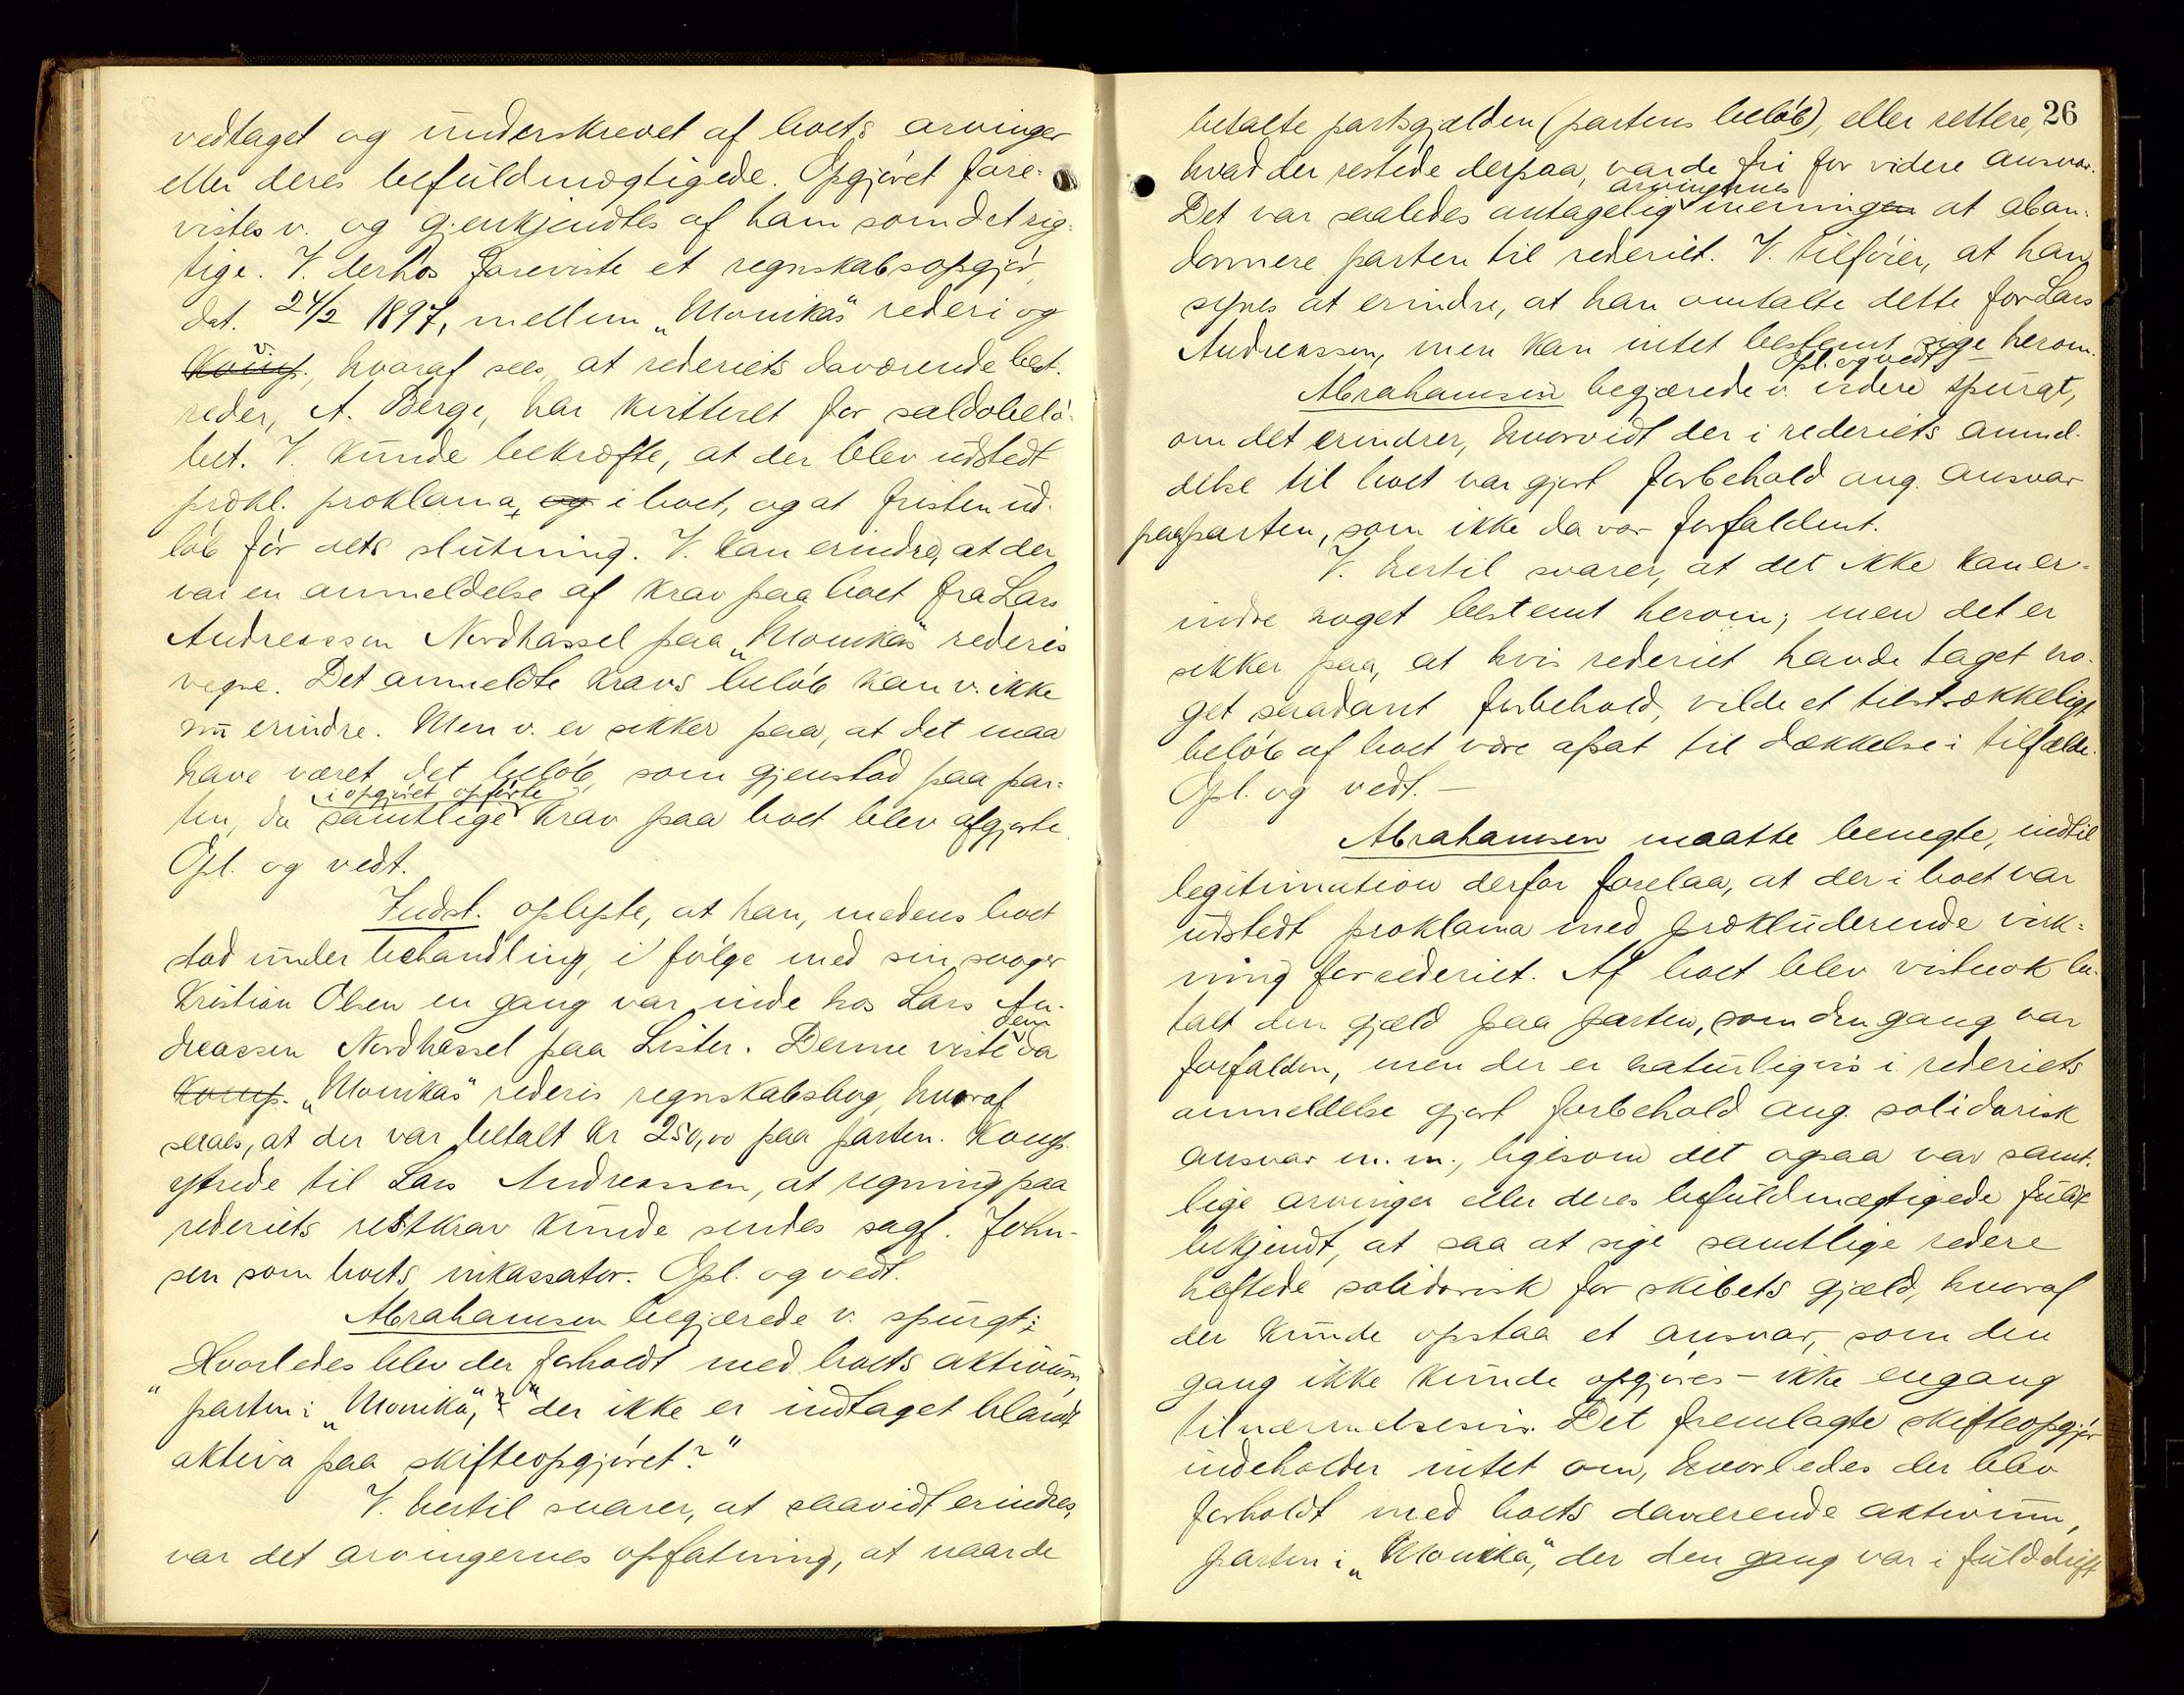 vedtaget og underskrevet af boets arvinger
eller deres befuldmægtigede. Opgjøret fore-
vistes v. og gjenkjendtes af ham som det rig-
tige. V. derhos foreviste et regnskabsopgjør,
dat. 24/2 1897, mellem „Monikas" rederi og
v.
Komp., hvoraf sees, at rederiets daværende best.
reder, A. Berge, har kvitteret for saldobelø-
bet. V. kunde bekræfte, at der blev udstedt
prækl. proklama, og i boet, og at fristen ud-
løb før dets slutning. V. kan erindre, at der
var en anmeldelse af krav paa boet fra Lars
Andreassen Nordhassel paa „Monikas" rederis
vegne. Det anmeldte kravs beløb kan v. ikke
nu erindre. Men v. er sikker paa, at det maa
have været det beløb, som gjenstod paa par-
i opgjøret opførte
ten, da samtlige krav paa boet blev afgjorte.
Opl. og vedt.
Indst. oplyste, at han, medens boet
stod under behandling, i følge med sin svoger
Kristian Olsen en gang var inde hos Lars An-
dem
dreassen Nordhassel paa Lister. Denne viste da
Komp. „Monikas" rederis regnskabsbog, hvoraf
saaes, at der var betalt kr 250,00 paa parten. Komp.
ytrede til Lars Andreassen, at regning paa
rederiets restkrav kunde sendes sagf. John-
sen som boets inkassator. Opl. og vedt.
Abrahamsen begjærede v. spurgt:
Hvorledes blev der forholdt med boets aktivum,
"parten i „Monika", der ikke er indtaget blandt
aktiva paa skifteopgjøret?"
V. hertil svarer, at saavidt erindres,
var det arvingernes opfatning, at naar de
26
betalte partsgjælden (partens beløb), eller rettere,
hvad der restede derpaa, var de fri for videre ansvar.
arvingernes
Det var saaledes antagelig meningen at aban-
donnere parten til rederiet. V. tilføier, at han
synes at erindre, at han omtalte dette for Lars
Andreassen, men kan intet bestemt sige herom.
Opl. og vedt –
Abrahamsen begjærede v. videre spurgt,
om det erindrer, hvorvidt der i rederiets anmel-
delse til boet var gjort forbehold ang. ansvar
paa parten, som ikke da var forfaldent.
V. hertil svarer, at det ikke kan er-
indre noget bestemt herom; men det er
sikker paa, at hvis rederiet havde taget no-
get saadant forbehold, vilde et tilstrækkeligt
beløb af boet være afsat til dækkelse i tilfælde.
Opl. og vedt. –
Abrahamsen maatte benegte, indtil
legitimation derfor forelaa, at der i boet var
udstedt proklama med prækluderende virk-
ning for rederiet. Af boet blev vistnok be-
talt den gjæld paa parten, som den gang var
forfalden, men der er naturligvis i rederiets
anmeldelse gjort forbehold ang. solidarisk
ansvar m. m., ligesom det ogsaa var samt-
lige arvinger eller deres befuldmægtigede fuldt
bekjendt, at saa at sige samtlige redere
heftede solidarisk for skibets gjæld, hvoraf
der kunde opstaa et ansvar, som den
gang ikke kunde opgjøres – ikke engang
tilnærmelsesvis. Det fremlagte skifteopgjør
indeholder intet om, hvorledes der blev
forholdt med boets daværende aktivum,
parten i „Monika", der den gang var i fuld drift